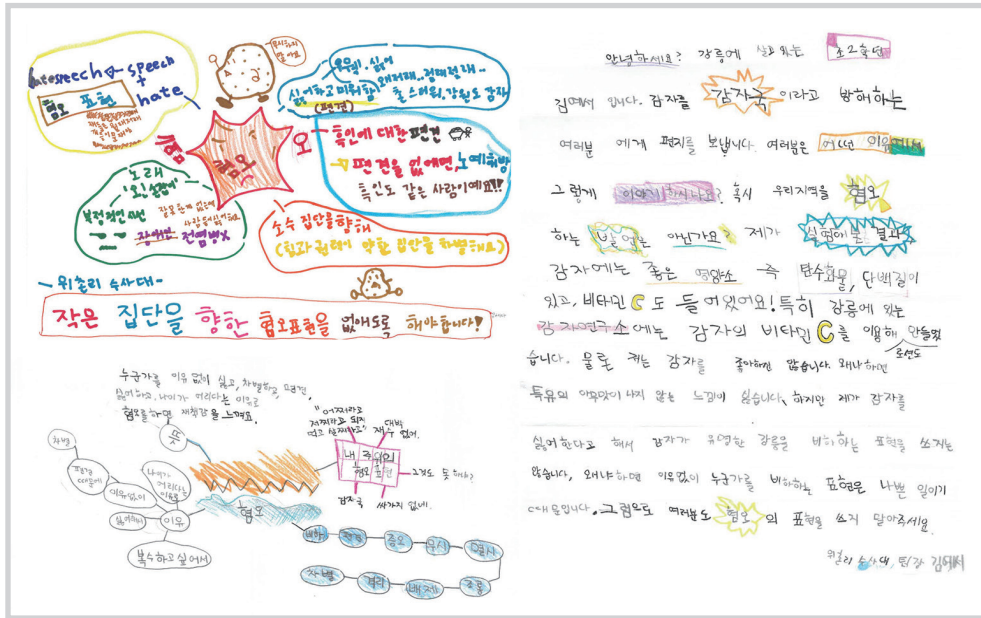 무시하지 말아요
hate speech speech + hate
혐오 표현
우웩!, 싫어
싫어하고 미워함 왜저래.. 쟤네전래..
(편견) 촌스러워, 강원도 감자
혐오
혐
오
흑인에 대한 편견
편견을 없애면, 노예해방
흑인도 같은 사람이예요!!
노래
부정적인 시선
장애인 전염병X
소수 집단을향해
(힘과 권력이 약한 집단을 차별해요)
- 위촌리 수사대 -
작은 집단을 향한 혐오표현을 없애도록 해야합니다!
누군가를 이유 없이 싫고, 차별하고, 편견,
싫어하고, 나이가 어리다는 이유로
혐오를하면 죄책감을 느껴요.
뜻
차별
편견 때문에
이유없이
나이가 어리다는 이유로
싫어해서
이유
복수하고싶어서
혐오
"어쩌라고
저쩌라고
대박
재수 없어.
내 주위의
혐오 표현
그것도 못 해?
감자국
싸가지 없네.
비하
편견
증오
무시
멸시
차별
격리
배제
조롱
안녕하세요? 강릉에 살고 있는 초2학년
김예서 입니다. 감자를 감자국 이라고 말해하는
여러분 에게 편지를 보냅니다. 여러분은 어떤 이유에서
그렇게 이야기 하시나요? 혹시 우리지역을 혐오
하는 것은 아닌가요? 제가 실험해본 결과
감자에는 좋은 영양소 즉 탄수화물, 단백질이
있고, 비타민 C도 들어있어요! 특히 강릉에 있는
감자연구소에는 감자의 비타민 C를 이용해 만들었
로션도
습니다. 물론 저는 감자를 좋아하진 않습니다. 왜냐하면
특유의 아무맛이 나지 않는 느낌이 싫습니다. 하지만 제가 감자를
싫어한다고 해서 감자가 유명한 강릉을 비하하는 표현을 쓰지는
않습니다. 왜냐하면 이유없이 누군가를 비하하는 표현은 나쁜 일이기
때문입니다. 그럼으로 여러분도 혐오의 표현을 쓰지 말아주세요.
위촌리 수사대, 팀장 김예서